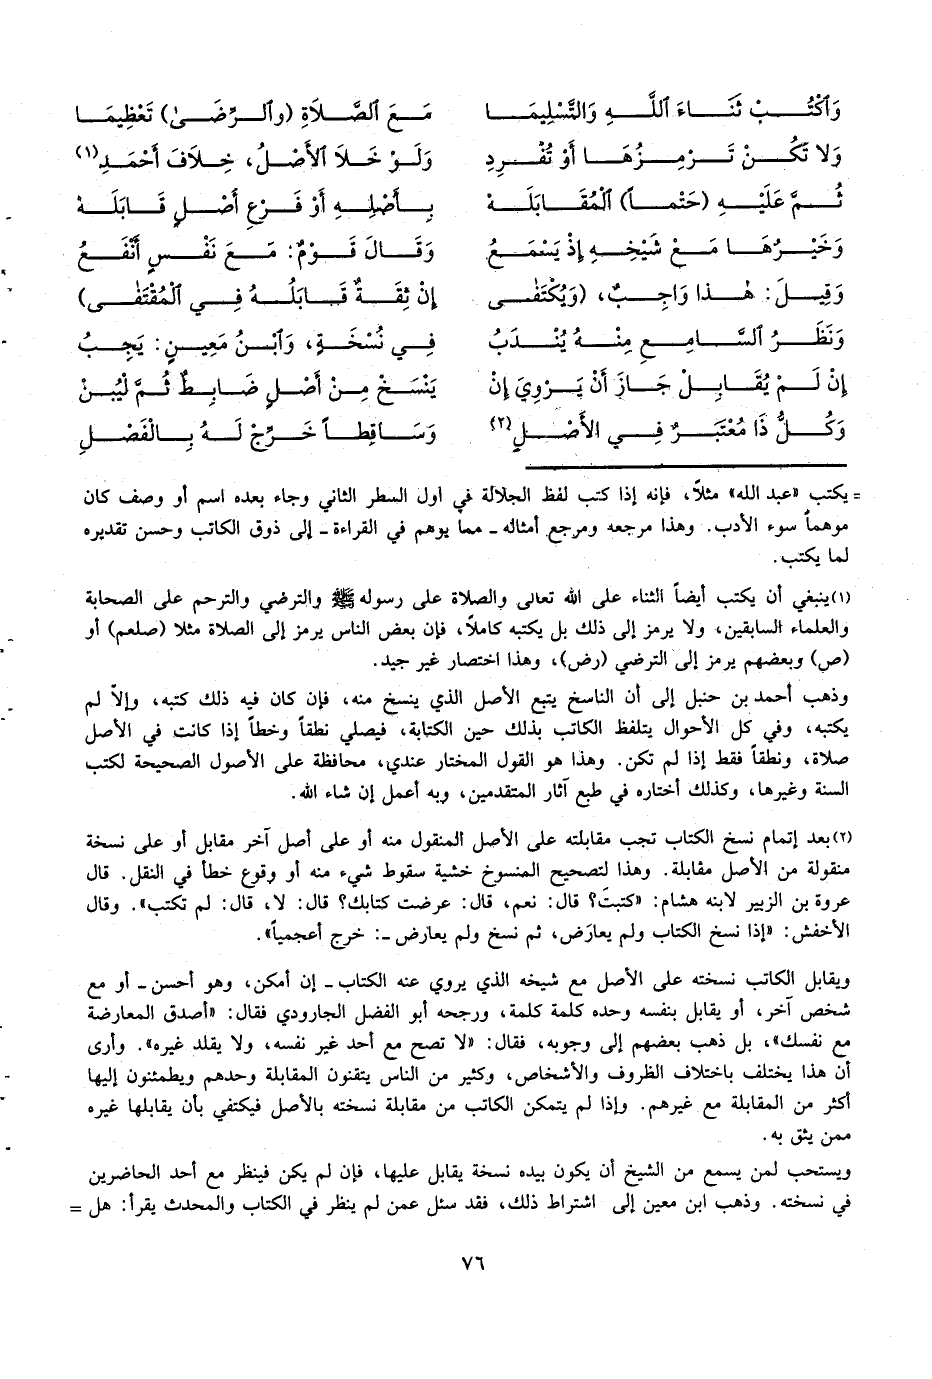 وَاكْتُبْ ثَنَاءَ اللَّهِ وَالتَّسْلِيمَا مَعَ الصَّلَاةِ (والرِّضَىٰ) تَعْظِيمَا
وَلَا تَكُنْ تَرْمِزُهَا أَوْ تُفْرِدِ وَلَوْ خَلَا الأَصْلُ، خِلَافَ أَحْمَدِ(١)
ثُمَّ عَلَيْهِ (حَتْماً) الْمُقَابَلَهْ بِأَصْلِهِ أَوْ فَرْعِ أَصْلٍ قَابَلَهْ
وَخَيْرُهَا مَعْ شَيْخِهِ إِذْ يَسْمَعُ وَقَالَ قَوْمٌ: مَعَ نَفْسٍ أَنْفَعُ
وَقِيلَ: هٰذا وَاجِبٌ، (وَيُكْتَفَى إِنْ ثِقَةٌ قَابَلَهُ فِي الْمُقْتَفَى)
وَنَظَرُ السَّامِعِ مِنْهُ يُنْدَبُ فِي نُسْخَةٍ، وَابْنُ مَعِينٍ: يَجِبُ
إِنْ لَمْ يُقَابِلْ جَازَ أَنْ يَرْوِيَ إِنْ يَنْسَخْ مِنْ أَصْلٍ ضَابِطٌ ثُمَّ لْيُبِنْ
وَكُلُّ ذَا مُعْتَبَرٌ فِي الأَصْلِ(٢) وَسَاقِطاً خَرِّجْ لَهُ بِالْفَصْلِ
= يكتب «عبد الله» مثلاً، فإنه إذا كتب لفظ الجلالة في أول السطر الثاني وجاء بعده اسم أو وصف كان
موهماً سوء الأدب. وهذا مرجعه ومرجع أمثاله ـ مما يوهم في القراءة ـ إلى ذوق الكاتب وحسن تقديره
لما يكتب.
(١) ينبغي أن يكتب أيضاً الثناء على الله تعالى والصلاة على رسوله ﷺ والترضي والترحم على الصحابة
والعلماء السابقين، ولا يرمز إلى ذلك بل يكتبه كاملاً، فإن بعض الناس يرمز إلى الصلاة مثلا (صلعم) أو
(ص) وبعضهم يرمز إلى الترضي (رض)، وهذا اختصار غير جيد.
وذهب أحمد بن حنبل إلى أن الناسخ يتبع الأصل الذي ينسخ منه، فإن كان فيه ذلك كتبه، وإلاّ لم
يكتبه، وفي كل الأحوال يتلفظ الكاتب بذلك حين الكتابة، فيصلي نطقاً وخطاً إذا كانت في الأصل
صلاة، ونطقاً فقط إذا لم تكن. وهذا هو القول المختار عندي، محافظة على الأصول الصحيحة لكتب
السنة وغيرها، وكذلك أختاره في طبع آثار المتقدمين، وبه أعمل إن شاء الله.
(٢) بعد إتمام نسخ الكتاب تجب مقابلته على الأصل المنقول منه أو على أصل آخر مقابل أو على نسخة
منقولة من الأصل مقابلة. وهذا لتصحيح المنسوخ خشية سقوط شيء منه أو وقوع خطأ في النقل. قال
عروة بن الزبير لابنه هشام: «كتبتَ؟ قال: نعم، قال: عرضت كتابك؟ قال: لا، قال: لم تكتب». وقال
الأخفش: «إذا نسخ الكتاب ولم يعارَض، ثم نسخ ولم يعارض ـ: خرج أعجمياً».
ويقابل الكاتب نسخته على الأصل مع شيخه الذي يروي عنه الكتاب ـ إن أمكن، وهو أحسن ـ أو مع
شخص آخر، أو يقابل بنفسه وحده كلمة كلمة، ورجحه أبو الفضل الجارودي فقال: «أصدق المعارضة
مع نفسك»، بل ذهب بعضهم إلى وجوبه، فقال: «لا تصح مع أحد غير نفسه، ولا يقلد غيره». وأرى
أن هذا يختلف باختلاف الظروف والأشخاص، وكثير من الناس يتقنون المقابلة وحدهم ويطمئنون إليها
أكثر من المقابلة مع غيرهم. وإذا لم يتمكن الكاتب من مقابلة نسخته بالأصل فيكتفي بأن يقابلها غيره
ممن يثق به.
ويستحب لمن يسمع من الشيخ أن يكون بيده نسخة يقابل عليها، فإن لم يكن فينظر مع أحد الحاضرين
في نسخته. وذهب ابن معين إلى اشتراط ذلك، فقد سئل عمن لم ينظر في الكتاب والمحدث يقرأ: هل =
٧٦